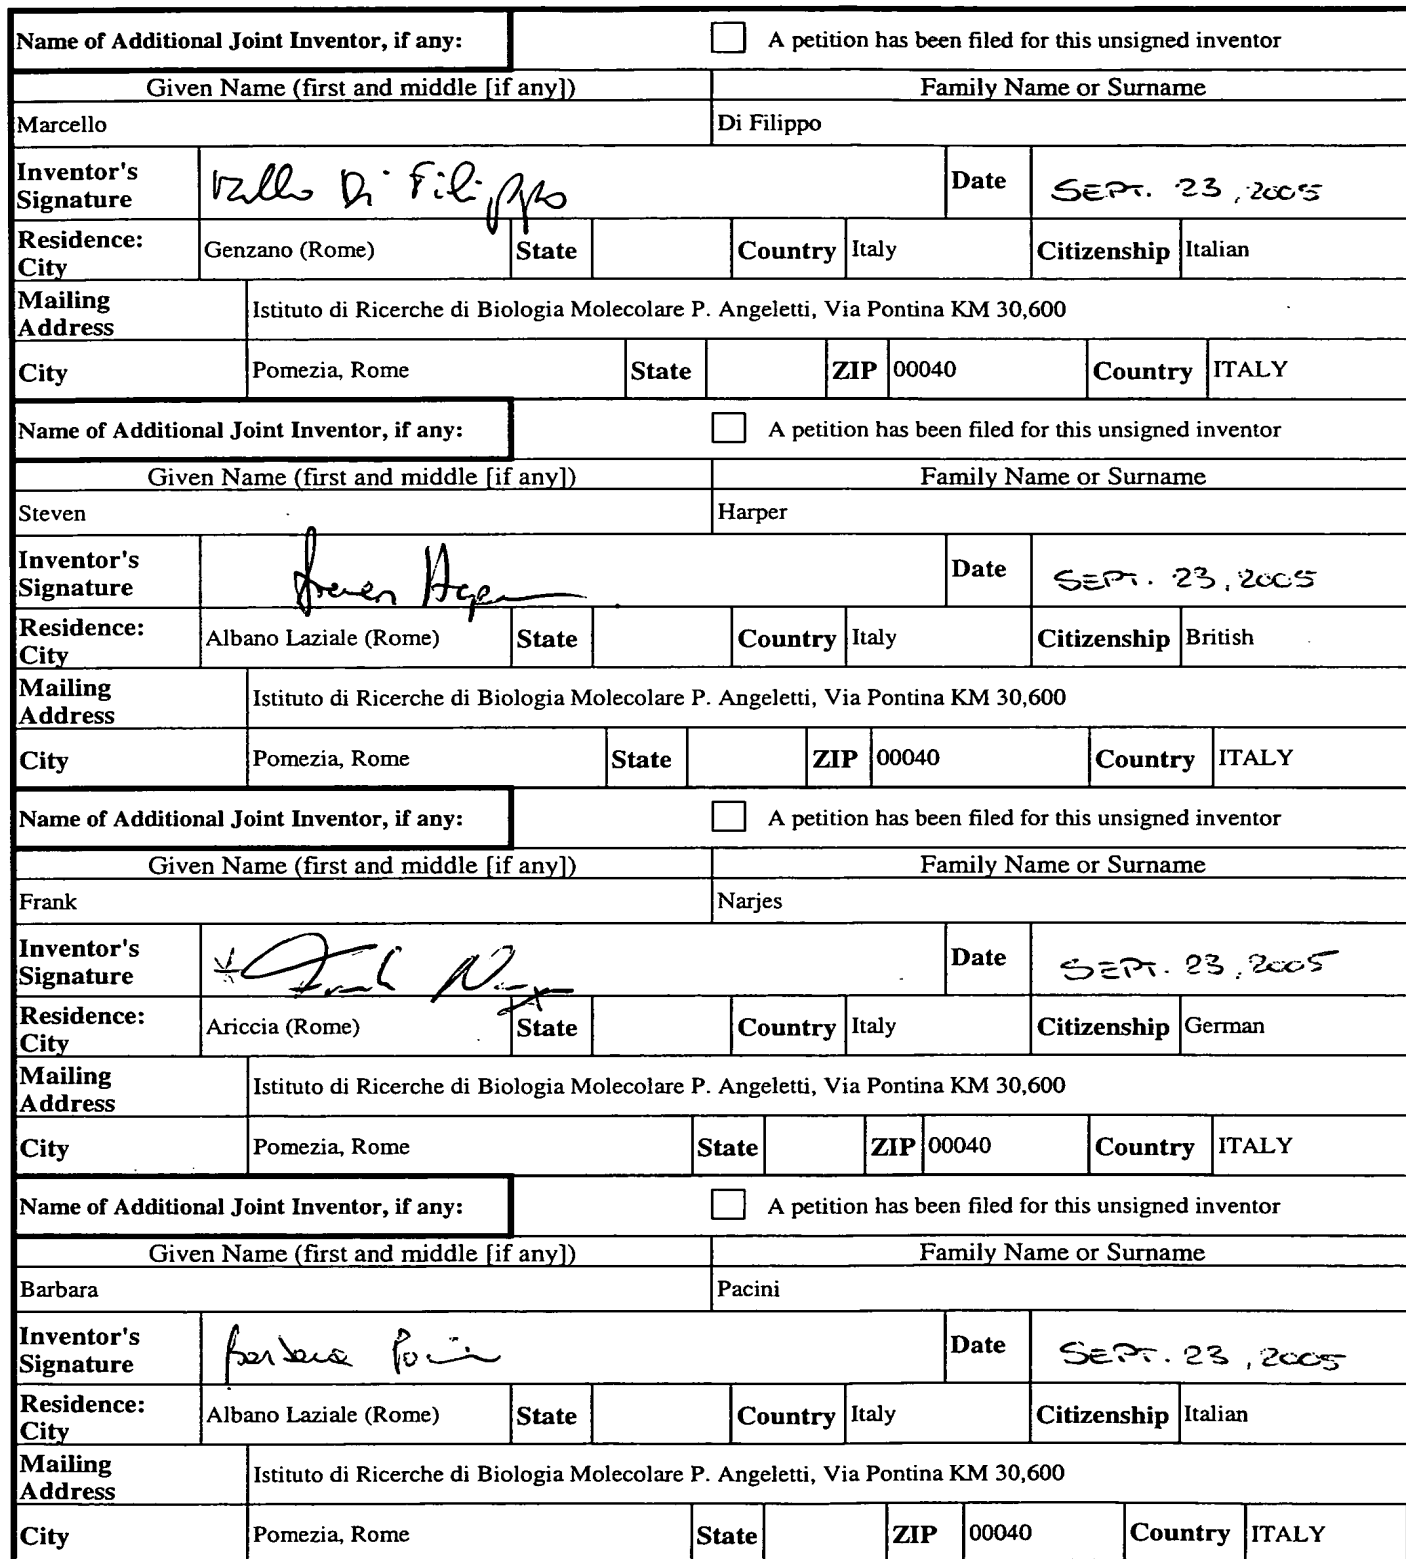 Name of Additional Joint Inventor, if any: A petition has been filed for this unsigned inventor
Given Name (first and middle [if any]) Family Name or Surname
Marcello Di Filippo
Inventor's Signature Di Filippo Date SEPT. 23, 2005
Residence: City Genzano (Rome) State Country Italy Citizenship Italian
Mailing Address Istituto di Ricerche di Biologia Molecolare P. Angeletti, Via Pontina KM 30,600
City Pomezia, Rome State ZIP 00040 Country ITALY
Name of Additional Joint Inventor, if any: A petition has been filed for this unsigned inventor
Given Name (first and middle [if any]) Family Name or Surname
Steven Harper
Inventor's Signature Steven Harper Date SEPT. 23, 2005
Residence: City Albano Laziale (Rome) State Country Italy Citizenship British
Mailing Address Istituto di Ricerche di Biologia Molecolare P. Angeletti, Via Pontina KM 30,600
City Pomezia, Rome State ZIP 00040 Country ITALY
Name of Additional Joint Inventor, if any: A petition has been filed for this unsigned inventor
Given Name (first and middle [if any]) Family Name or Surname
Frank Narjes
Inventor's Signature Frank Date SEPT. 23, 2005
Residence: City Ariccia (Rome) State Country Italy Citizenship German
Mailing Address Istituto di Ricerche di Biologia Molecolare P. Angeletti, Via Pontina KM 30,600
City Pomezia, Rome State ZIP 00040 Country ITALY
Name of Additional Joint Inventor, if any: A petition has been filed for this unsigned inventor
Given Name (first and middle [if any]) Family Name or Surname
Barbara Pacini
Inventor's Signature Barbara Pacini Date SEPT. 23, 2005
Residence: City Albano Laziale (Rome) State Country Italy Citizenship Italian
Mailing Address Istituto di Ricerche di Biologia Molecolare P. Angeletti, Via Pontina KM 30,600
City Pomezia, Rome State ZIP 00040 Country ITALY